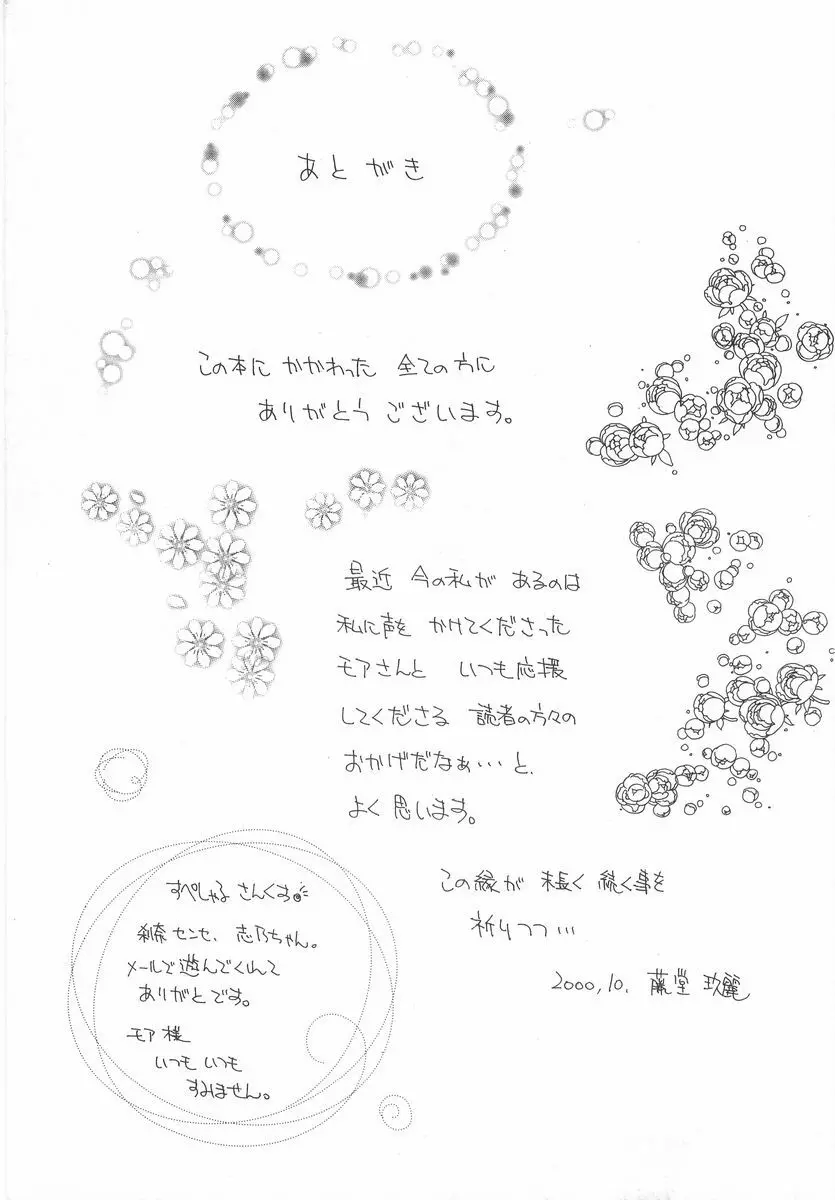 あとがき
この本に かかわった 全ての方に
ありがとう ございます。
最近 今の私が あるのは
私に声を かけてくださった
モアさんと いつも応援
してくださる 読者の方々の
おかげだなぁ…と、
よく思います。
この縁が 末長く 続く事を
祈りつつ…
2000,10. 藤堂 玖麗
すぺしゃる さんくす
センセ、志乃ちゃん。
メールで遊んでくれて
ありがとです。
モア様
いつも いつも
すみません。